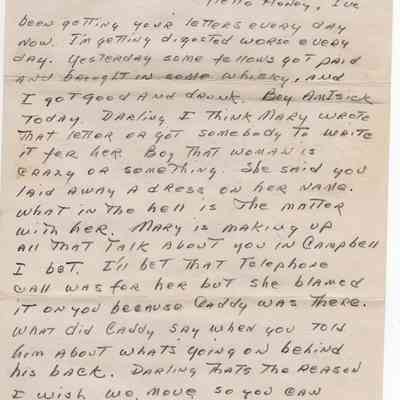 Hello Honey, I've
been getting your letters every day
now. I'm getting digosted worse every
day. Yesterday some fellows got paid
and brought in some whisky, and
I got good and drunk. Boy Am I sick
today. Darling I think Mary wrote
that letter or got somebody to write
it for her. Boy that woman is
crazy or something. She said you
laid away a dress on her name.
What in the hell is the matter
with her. Mary is making up
all that talk about you in Campbell
I bet. I'll bet that telephone
call was for her but she blamed
it on you because Caddy was there.
What did Caddy say when you told
him about what's going on behind
his back. Darling that's the reason
I wish we move so you can